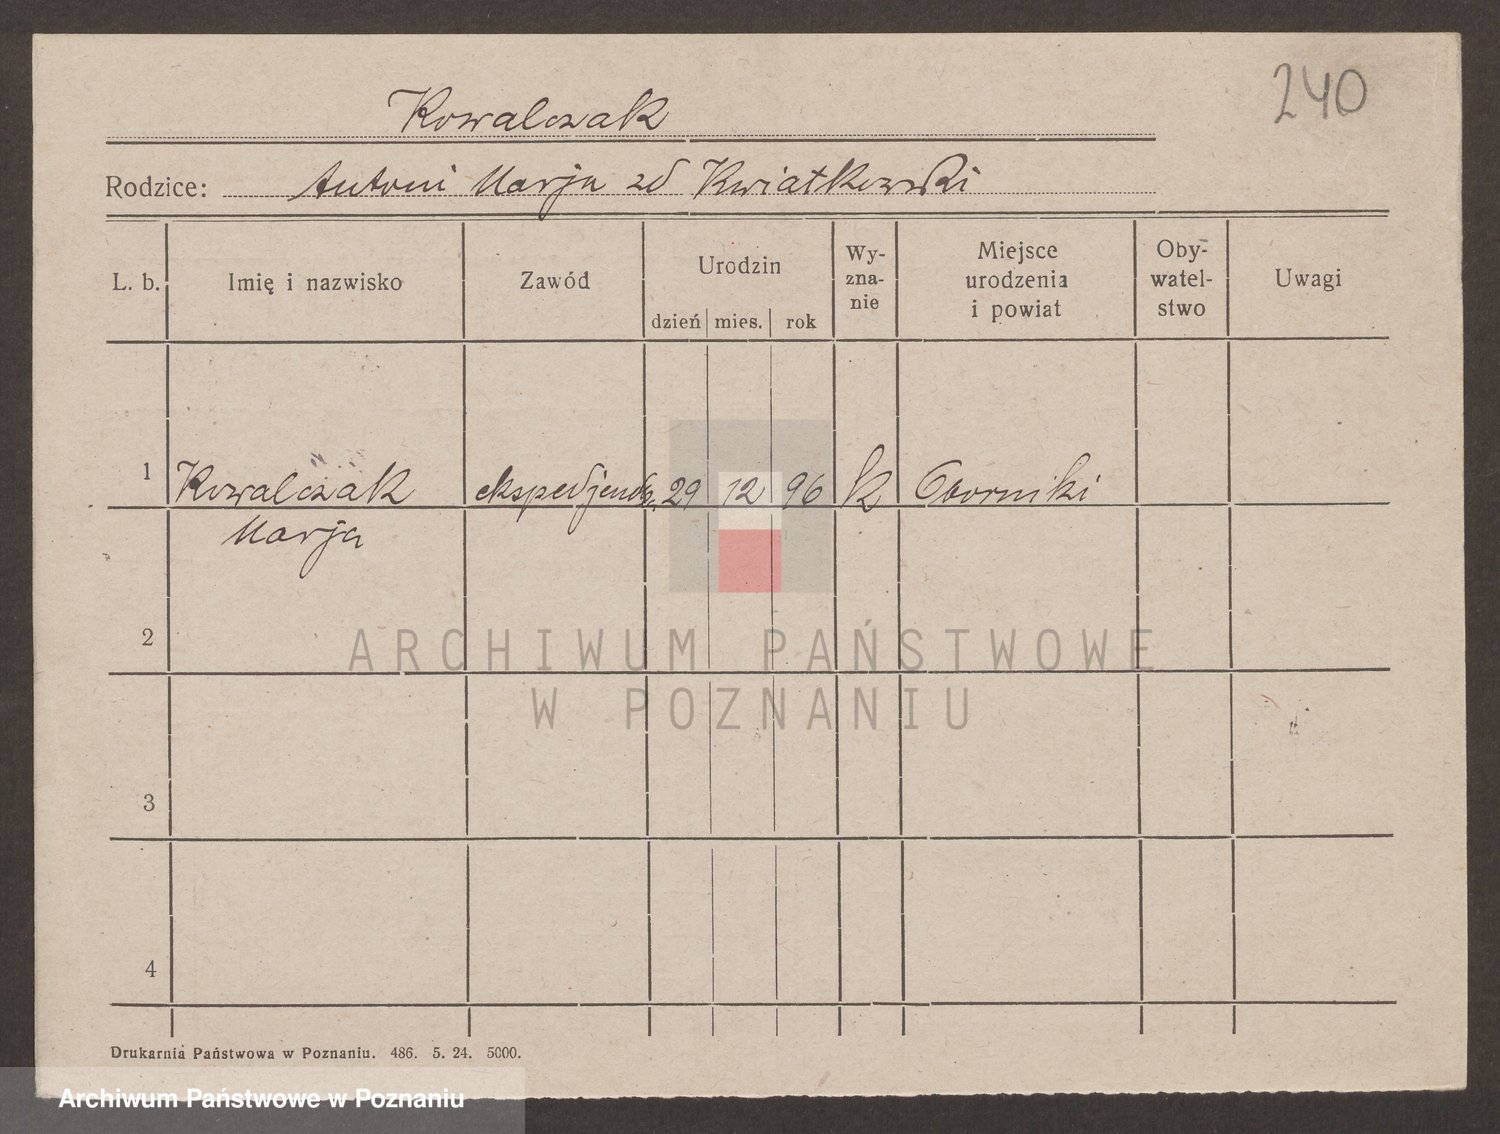 240
Kowalczak
Rodzice: Antoni Marja zd Kwiatkowski
L. b. Imię i nazwisko Zawód Urodzin dzień mies. rok Wy-zna-nie Miejsce urodzenia i powiat Oby-watel-stwo Uwagi
1 Kowalczak ekspedjentka 29 12 96 k Oborniki
Marja
2
ARCHIWUM PAŃSTWOWE
W POZNANIU
3
4
Drukarnia Państwowa w Poznaniu. 486. 5. 24. 5000.
Archiwum Państwowe w Poznaniu